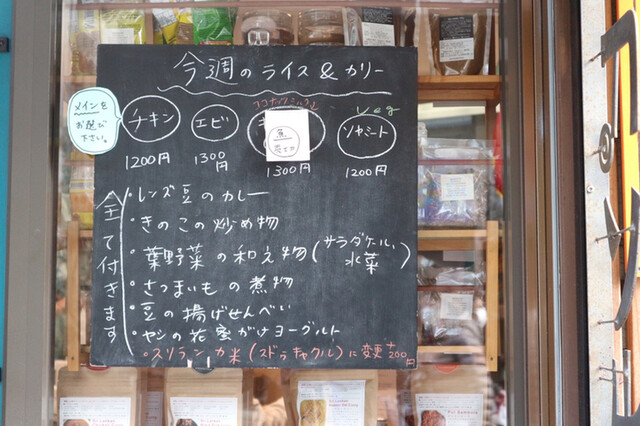 今週のライス&カリー
メインを
お選び
下さい。
チキン
エビ
ココナッツミルク
魚
売切れ
veg
ソヤミート
1200円
1300円
1300円
1200円
全て付きます
・レンズ豆のカレー
・きのこの炒め物
・葉野菜の和え物(サラダケール、水菜)
・さつまいもの煮物
・豆の揚げせんべい
・ヤシの花蜜がけヨーグルト
・スリランカ米(スドゥキャクル)に変更+200円